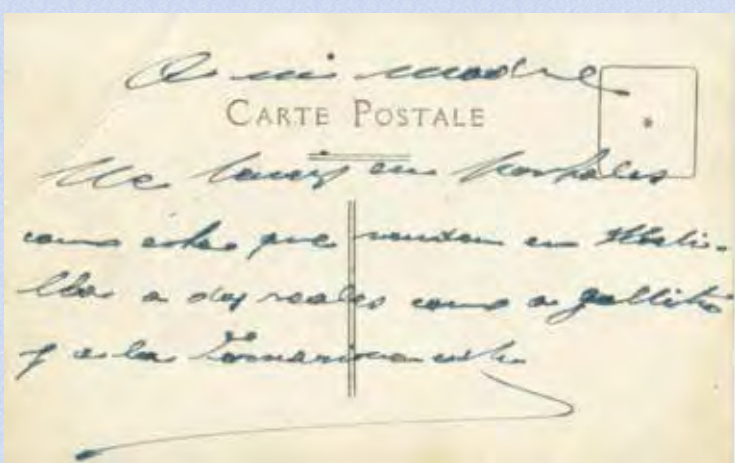 A mi madre
CARTE POSTALE
Me teneis en postales
como estas que venden en Melli-
lla a dos reales como a gallito
y a la